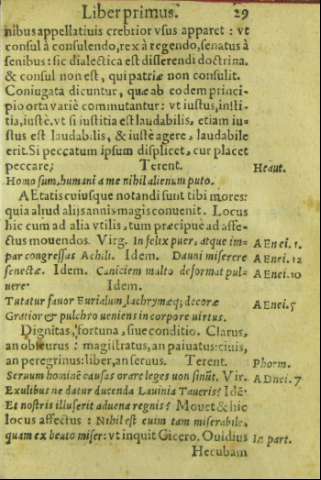 Liber primus. 29
nibus appellatiuis crebrior vsus apparet : vt
consul à consulendo, rex à regendo, senatus à
senibus : sic dialectica est disserendi doctrina.
& consul non est, qui patriæ non consulit.
Coniugata dicuntur, quæ ab eodem princi-
pio orta variè commutantur : vt iustus, iusti-
tia, iustè. vt si iustitia est laudabilis, etiam iu-
stus est laudabilis, & iustè agere, laudabile
erit. Si peccatum ipsum displicet, cur placet
peccare; Terent. Heaut.
Homo sum, humani a me nihil alienum puto.
AEtatis cuiusque notandi sunt tibi mores:
quia aliud aliis annis magis conuenit. Locus
hic cum ad alia vtilis, tum præcipuè ad affe-
ctus mouendos. Virg. In felix puer, atque im- AEnei. 1.
par congressus Achili. Idem. Dauni miserere AEnei. 12
senectæ. Idem. Caniciem multo deformat pul- AEnei. 10
uere. Idem.
Tutatur fauor Eurialum, lachrymæq; decoræ AEnei. 5
Gratior & pulchro ueniens in corpore uirtus.
Dignitas, fortuna, siue conditio. Clarus,
an obscurus : magistratus, an paiuatus: ciuis,
an peregrinus: liber, an seruus. Terent. Phorm.
Seruum hominē causas orare leges non sinūt. Vir. ADnei. 7
Exulibus ne datur ducenda Lauinia Taueris? Idē.
Et nostris illuserit aduena regnis? Mouet & hic
locus affectus : Nihil est enim tam miserabile,
quam ex beato miser: vt inquit Cicero. Ouidius In part.
Hecubam